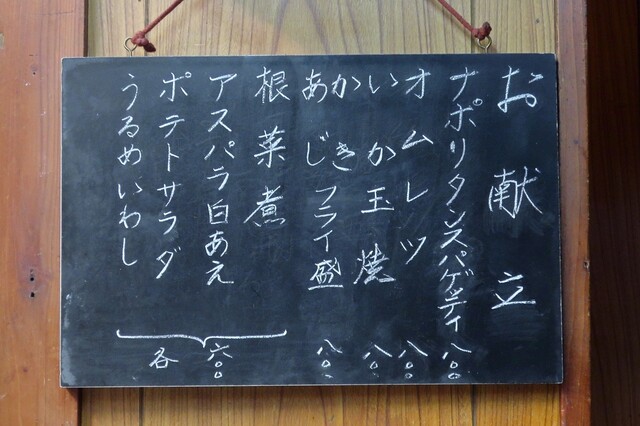 お献立
ナポリタンスパゲッティ 八〇〇
オムレツ 八〇〇
いか玉焼 八〇〇
かき
あじ フライ盛 八〇〇
根菜煮
アスパラ白あえ
ポテトサラダ
うるめいわし
各 六〇〇